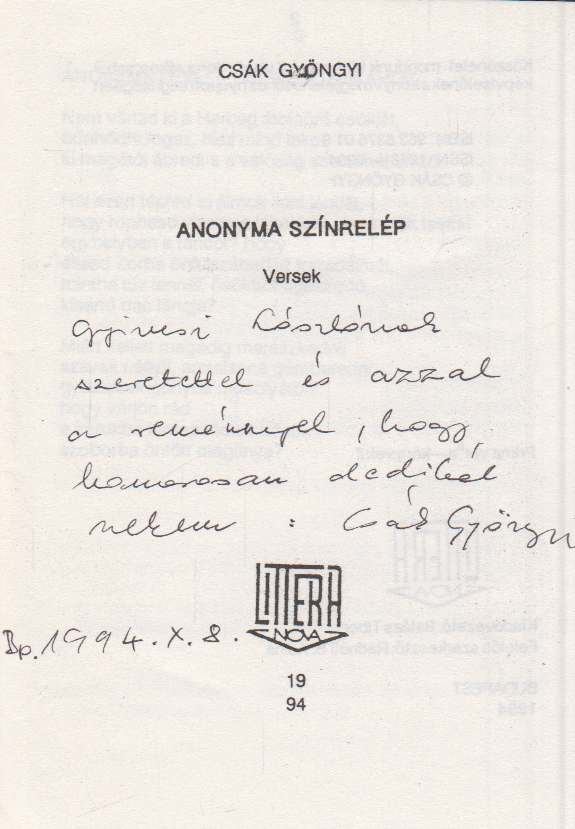 CSÁK GYÖNGYI
ANONYMA SZÍNRELÉP
Versek
László
szeretettel és azzal
a reménnyel, hogy
hamarosan dedikál
nekem : Csák Gyöngyi
LITTERA
NOVA
Bp. 1994. X. 8.
19
94